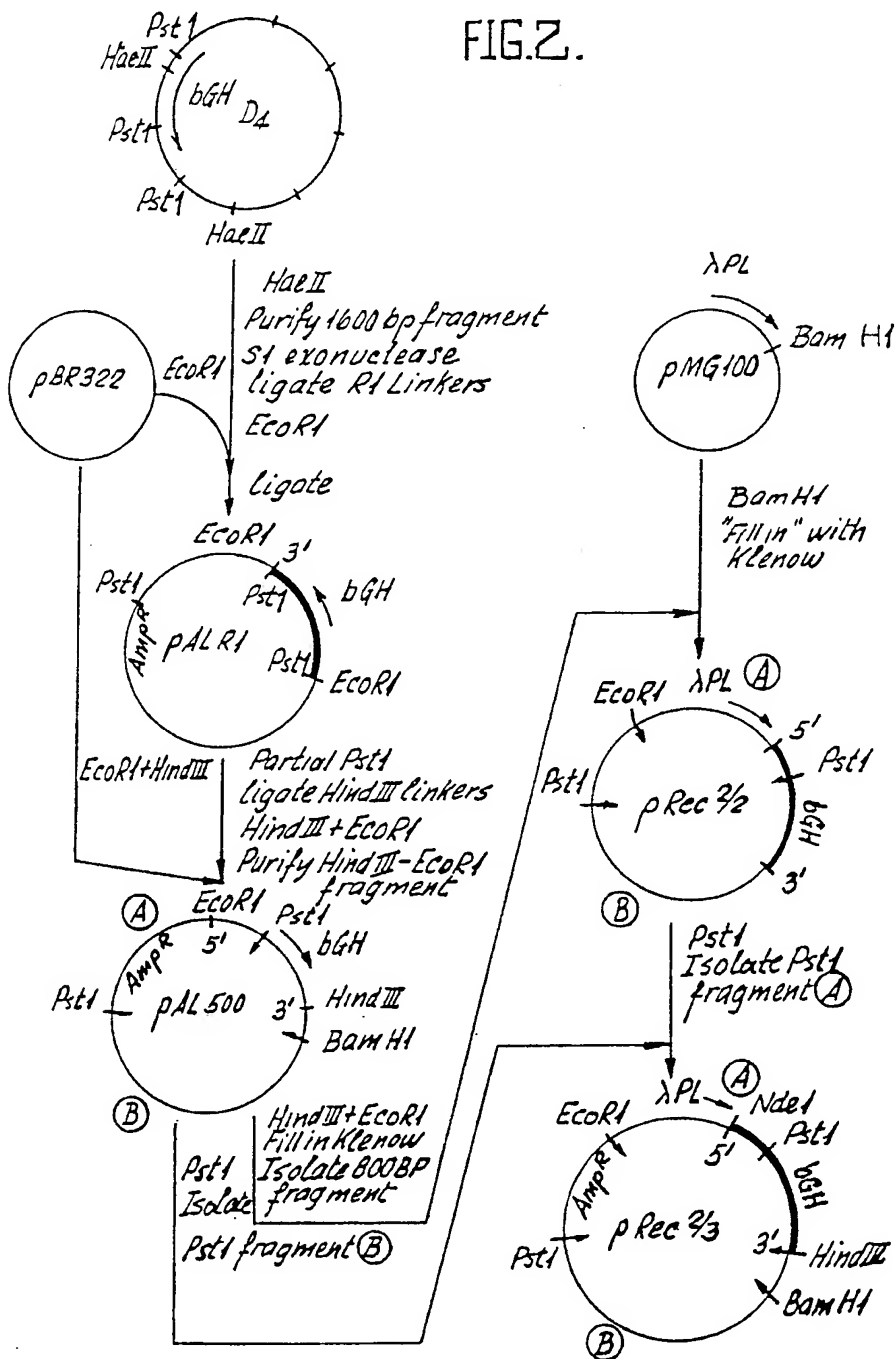 FIG.2.
Pst1
HaeII
bGH
D4
Pst1
Pst1
HaeII
HaeII
Purify 1600 bp fragment
S1 exonuclease
ligate R1 Linkers
EcoR1
ligate
pBR322
EcoR1
EcoR1
3'
Pst1
Pst1
bGH
AmpR
pALR1
Pst1
EcoR1
EcoR1+HindIII
Partial Pst1
ligate HindIII linkers
HindIII+EcoR1
Purify HindIII-EcoR1
fragment
A
EcoR1
5'
Pst1
bGH
AmpR
Pst1
pAL500
3'
HindIII
BamH1
B
Pst1
Isolate
Pst1 fragment B
HindIII+EcoR1
Fill in Klenow
Isolate 800BP
fragment
λPL
Bam H1
pMG100
BamH1
"Fill in" with
Klenow
EcoR1
λPL A
5'
Pst1
Pst1
pRec 2/2
bGH
3'
B
Pst1
Isolate Pst1
fragment A
EcoR1
λPL
A
Nde1
5'
Pst1
bGH
AmpR
Pst1
pRec 2/3
3'
HindIII
BamH1
B